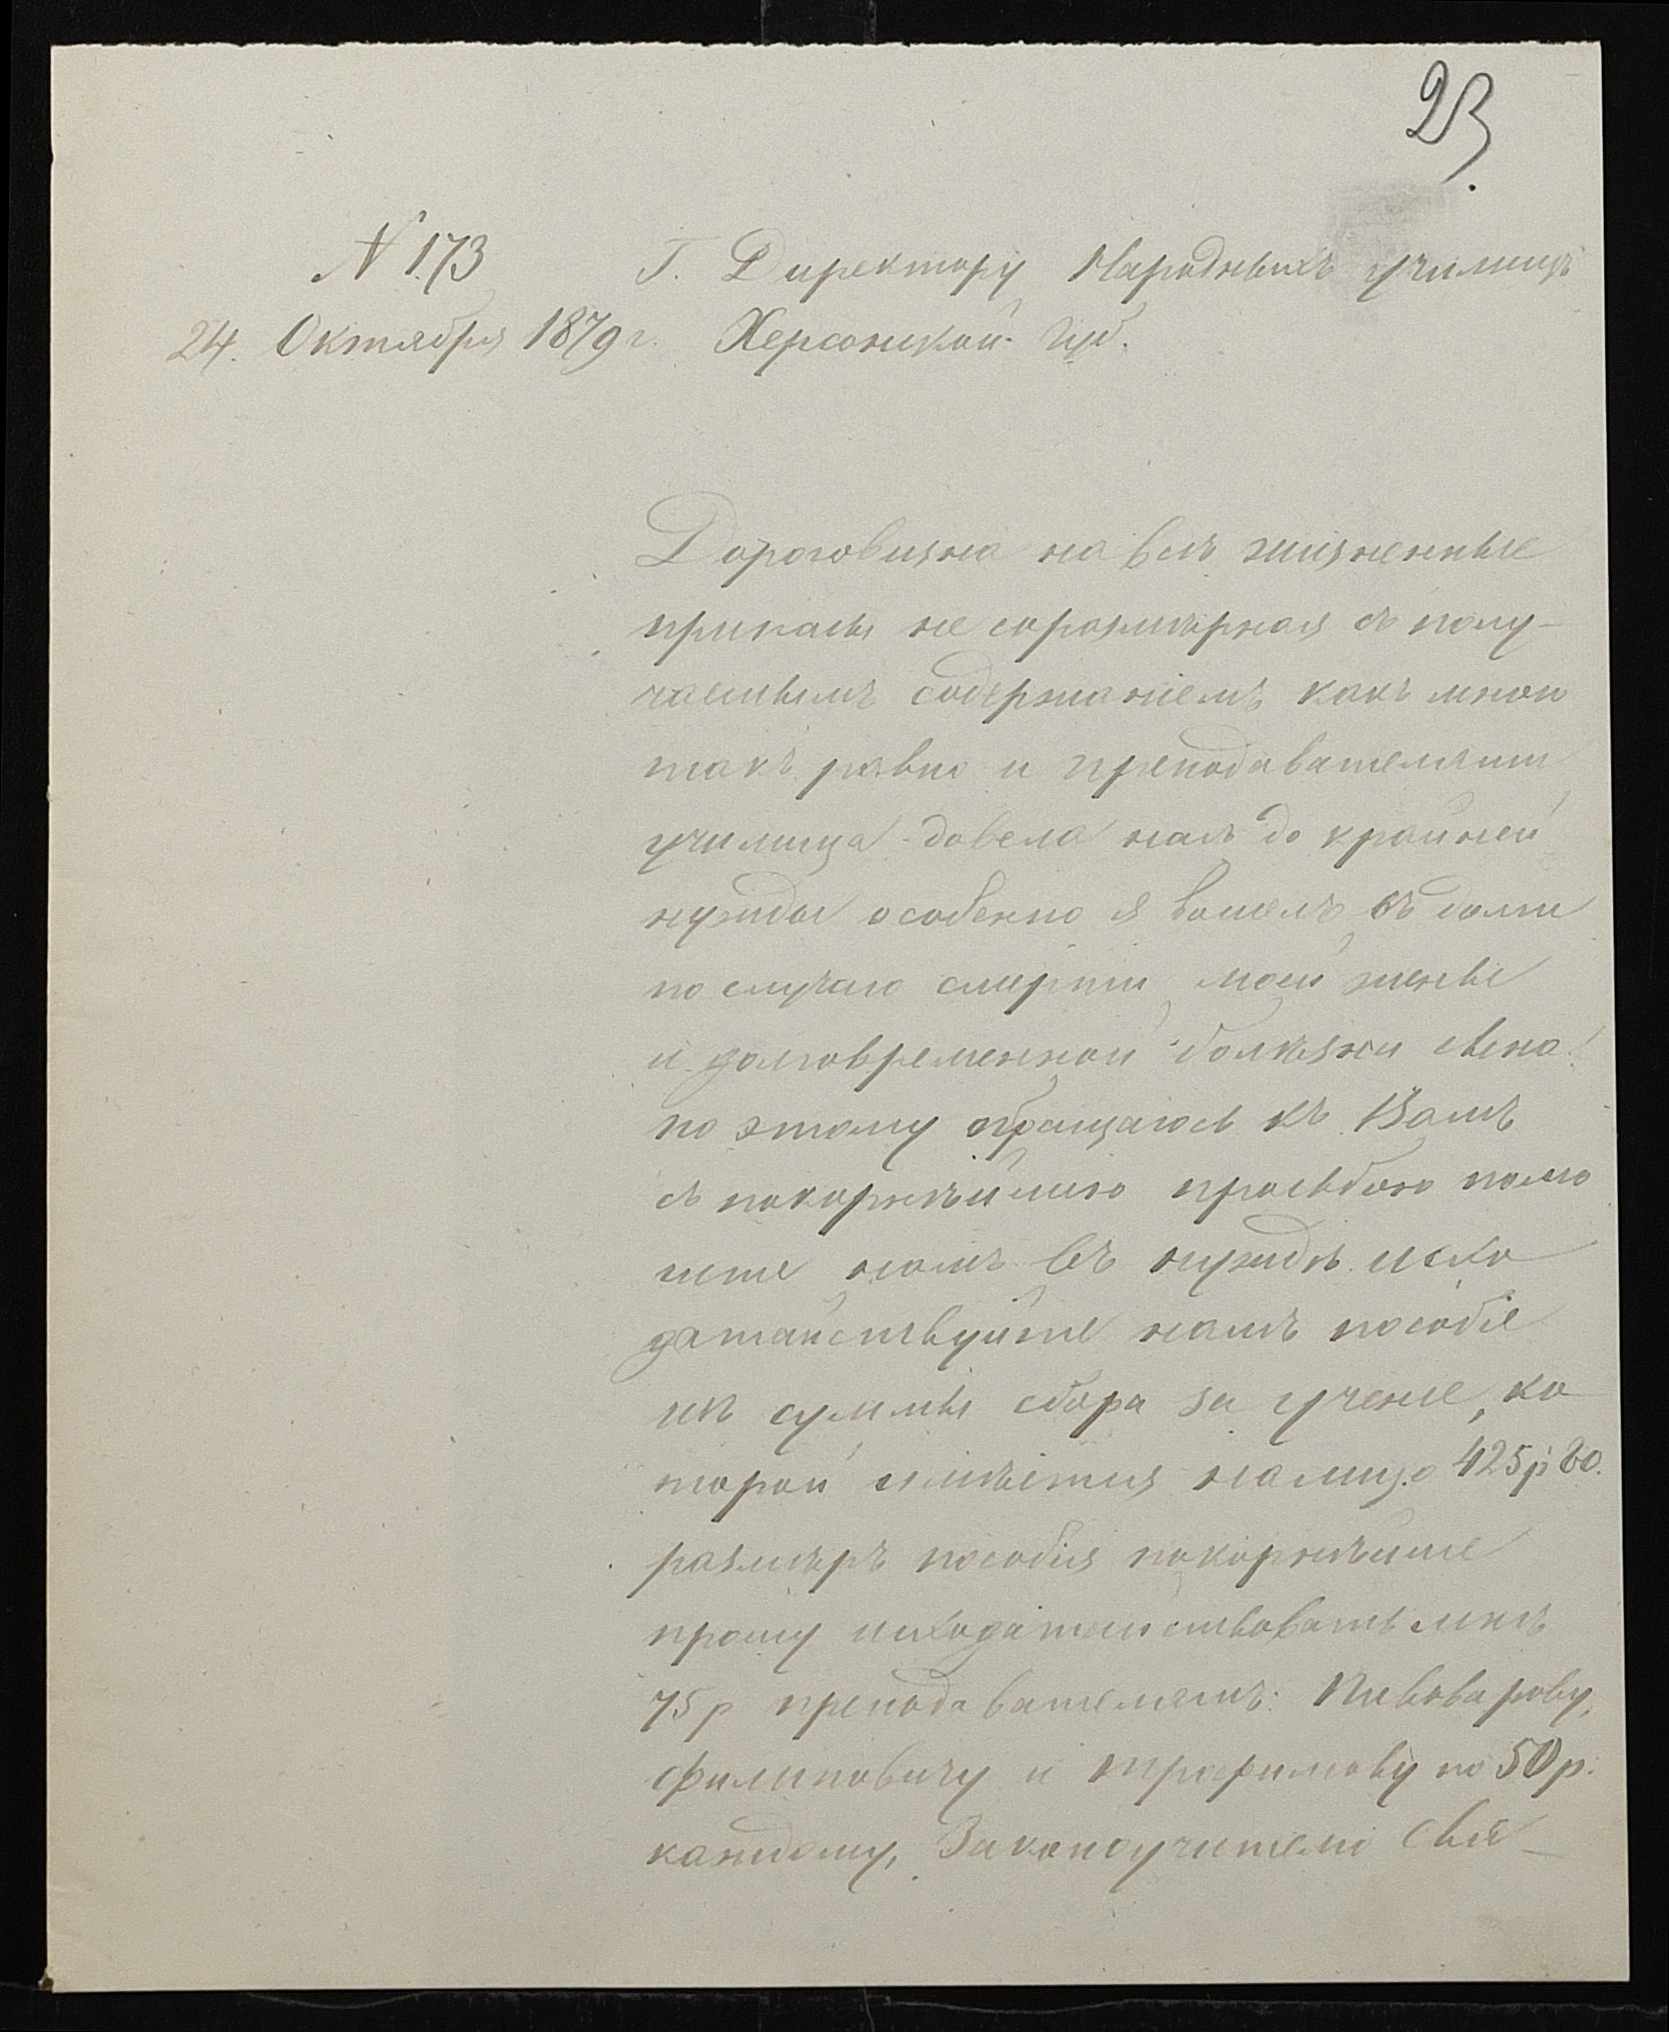 23.
N 173
Г. Директору Народныхъ училищъ
24. Октября 1879 г. Херсонской Губ.
Дороговизна на всѣ жизненные
припасы не соразмѣрная съ полу-
чаемымъ содержаніемъ какъ мною
такъ равно и преподавателями
училища довела насъ до крайней
нужды особенно я вошелъ въ долги
по случаю смерти моей жены
и долговременной болѣзни сына
по этому обращаюсь къ Вамъ
съ покорнѣйшею просьбою помо
гите намъ въ нуждѣ исхо
датайствуйте намъ пособіе
изъ суммы сбора за ученіе, ко
торой имѣется налицо 425 р 80.
размѣръ пособія покорнѣйше
прошу исходатайствовать мнѣ
75 р преподавателямъ: Пивоварову,
Филиповичу и Трофимову по 50 р.
каждому, Законоучителю Свя-